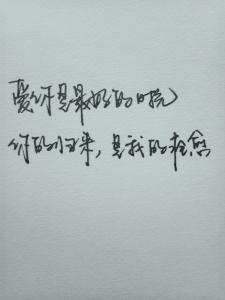 爱你是最好的时光
你的归来，是我的痊愈